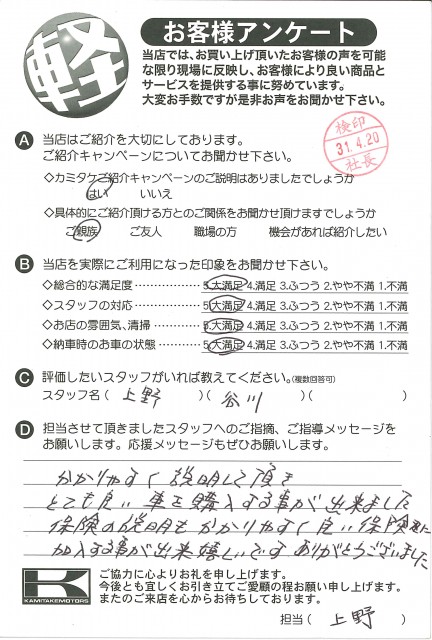 軽
お客様アンケート
当店では、お買い上げ頂いたお客様の声を可能
な限り現場に反映し、お客様により良い商品と
サービスを提供する事に努めています。
大変お手数ですが是非お声をお聞かせ下さい。
検印
31.4.20
社長
A 当店はご紹介を大切にしております。
ご紹介キャンペーンについてお聞かせ下さい。
◇カミタケご紹介キャンペーンのご説明はありましたでしょうか
はい いいえ
◇具体的にご紹介頂ける方とのご関係をお聞かせ頂けますでしょうか
ご親族 ご友人 職場の方 機会があれば紹介したい
B 当店を実際にご利用になった印象をお聞かせ下さい。
◇総合的な満足度 …………… 5.大満足 4.満足 3.ふつう 2.やや不満 1.不満
◇スタッフの対応 …………… 5.大満足 4.満足 3.ふつう 2.やや不満 1.不満
◇お店の雰囲気、清掃 ……… 5.大満足 4.満足 3.ふつう 2.やや不満 1.不満
◇納車時のお車の状態 ……… 5.大満足 4.満足 3.ふつう 2.やや不満 1.不満
C 評価したいスタッフがいれば教えてください。(複数回答可)
スタッフ名( 上野 )( 谷川 )( )
D 担当させて頂きましたスタッフへのご指摘、ご指導メッセージを
お願いします。応援メッセージもぜひお願いします。
わかりやすく説明して頂き
とても良い車を購入する事が出来ました
保険の説明もわかりやすく良い保険に
加入する事が出来嬉しいです ありがとうございました
K
KAMITAKEMOTORS
ご協力に心よりお礼を申し上げます。
今後とも宜しくお引き立てご愛顧の程お願い申し上げます。
またのご来店を心からお待ちしております。
担当( 上野 )